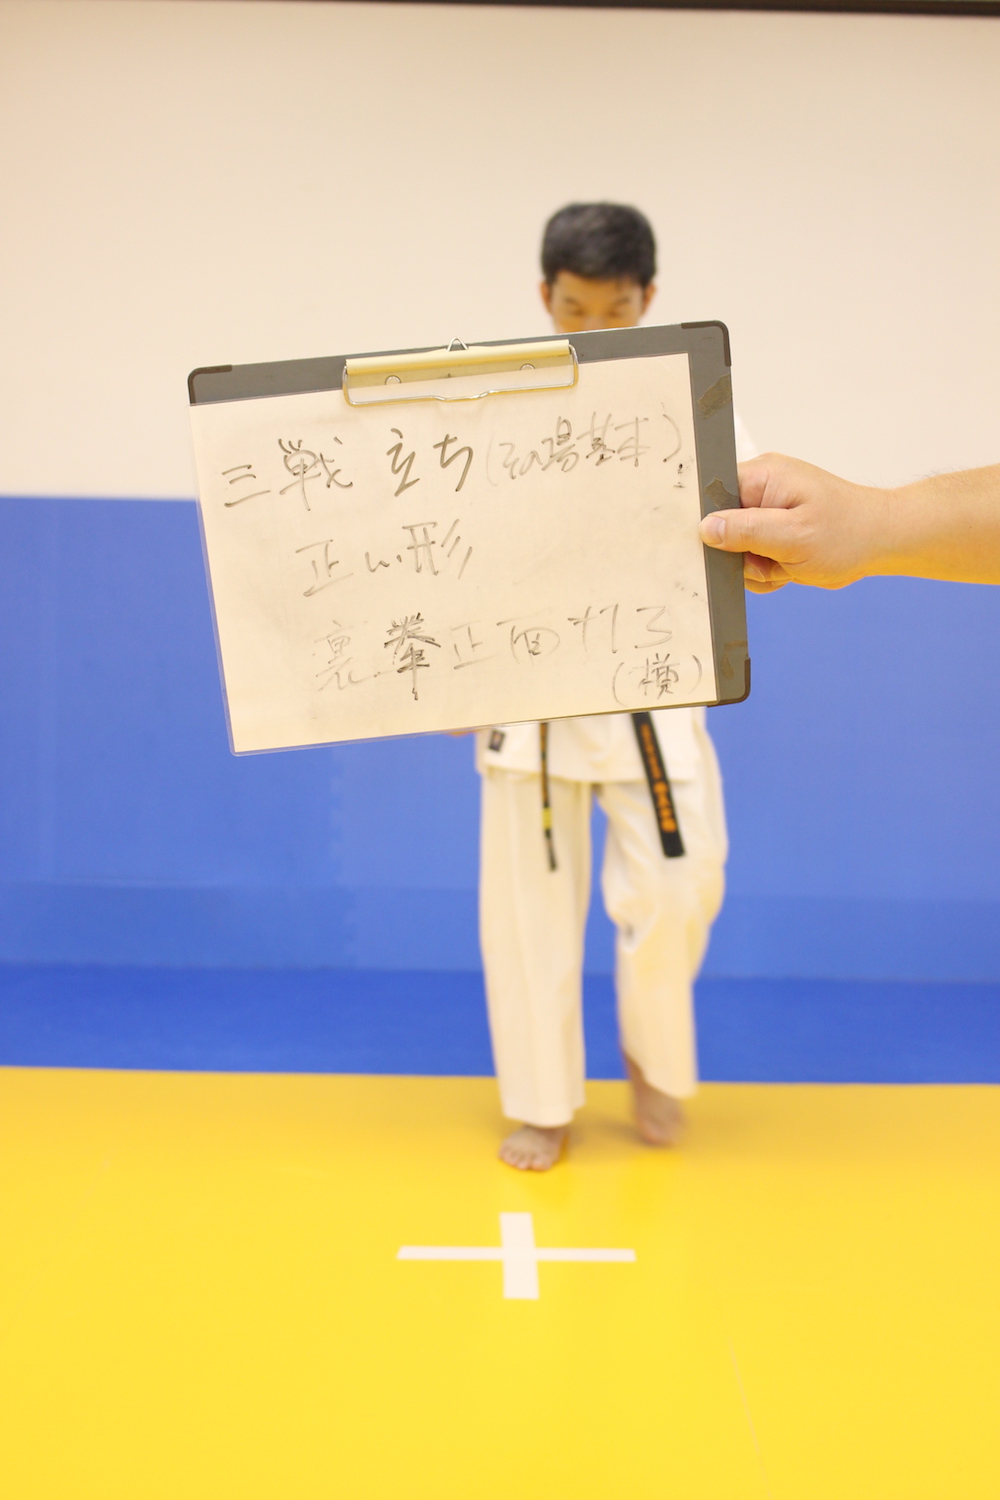 三戦 立ち(その場基本)
正しい形
裏拳正面打ち
(横)